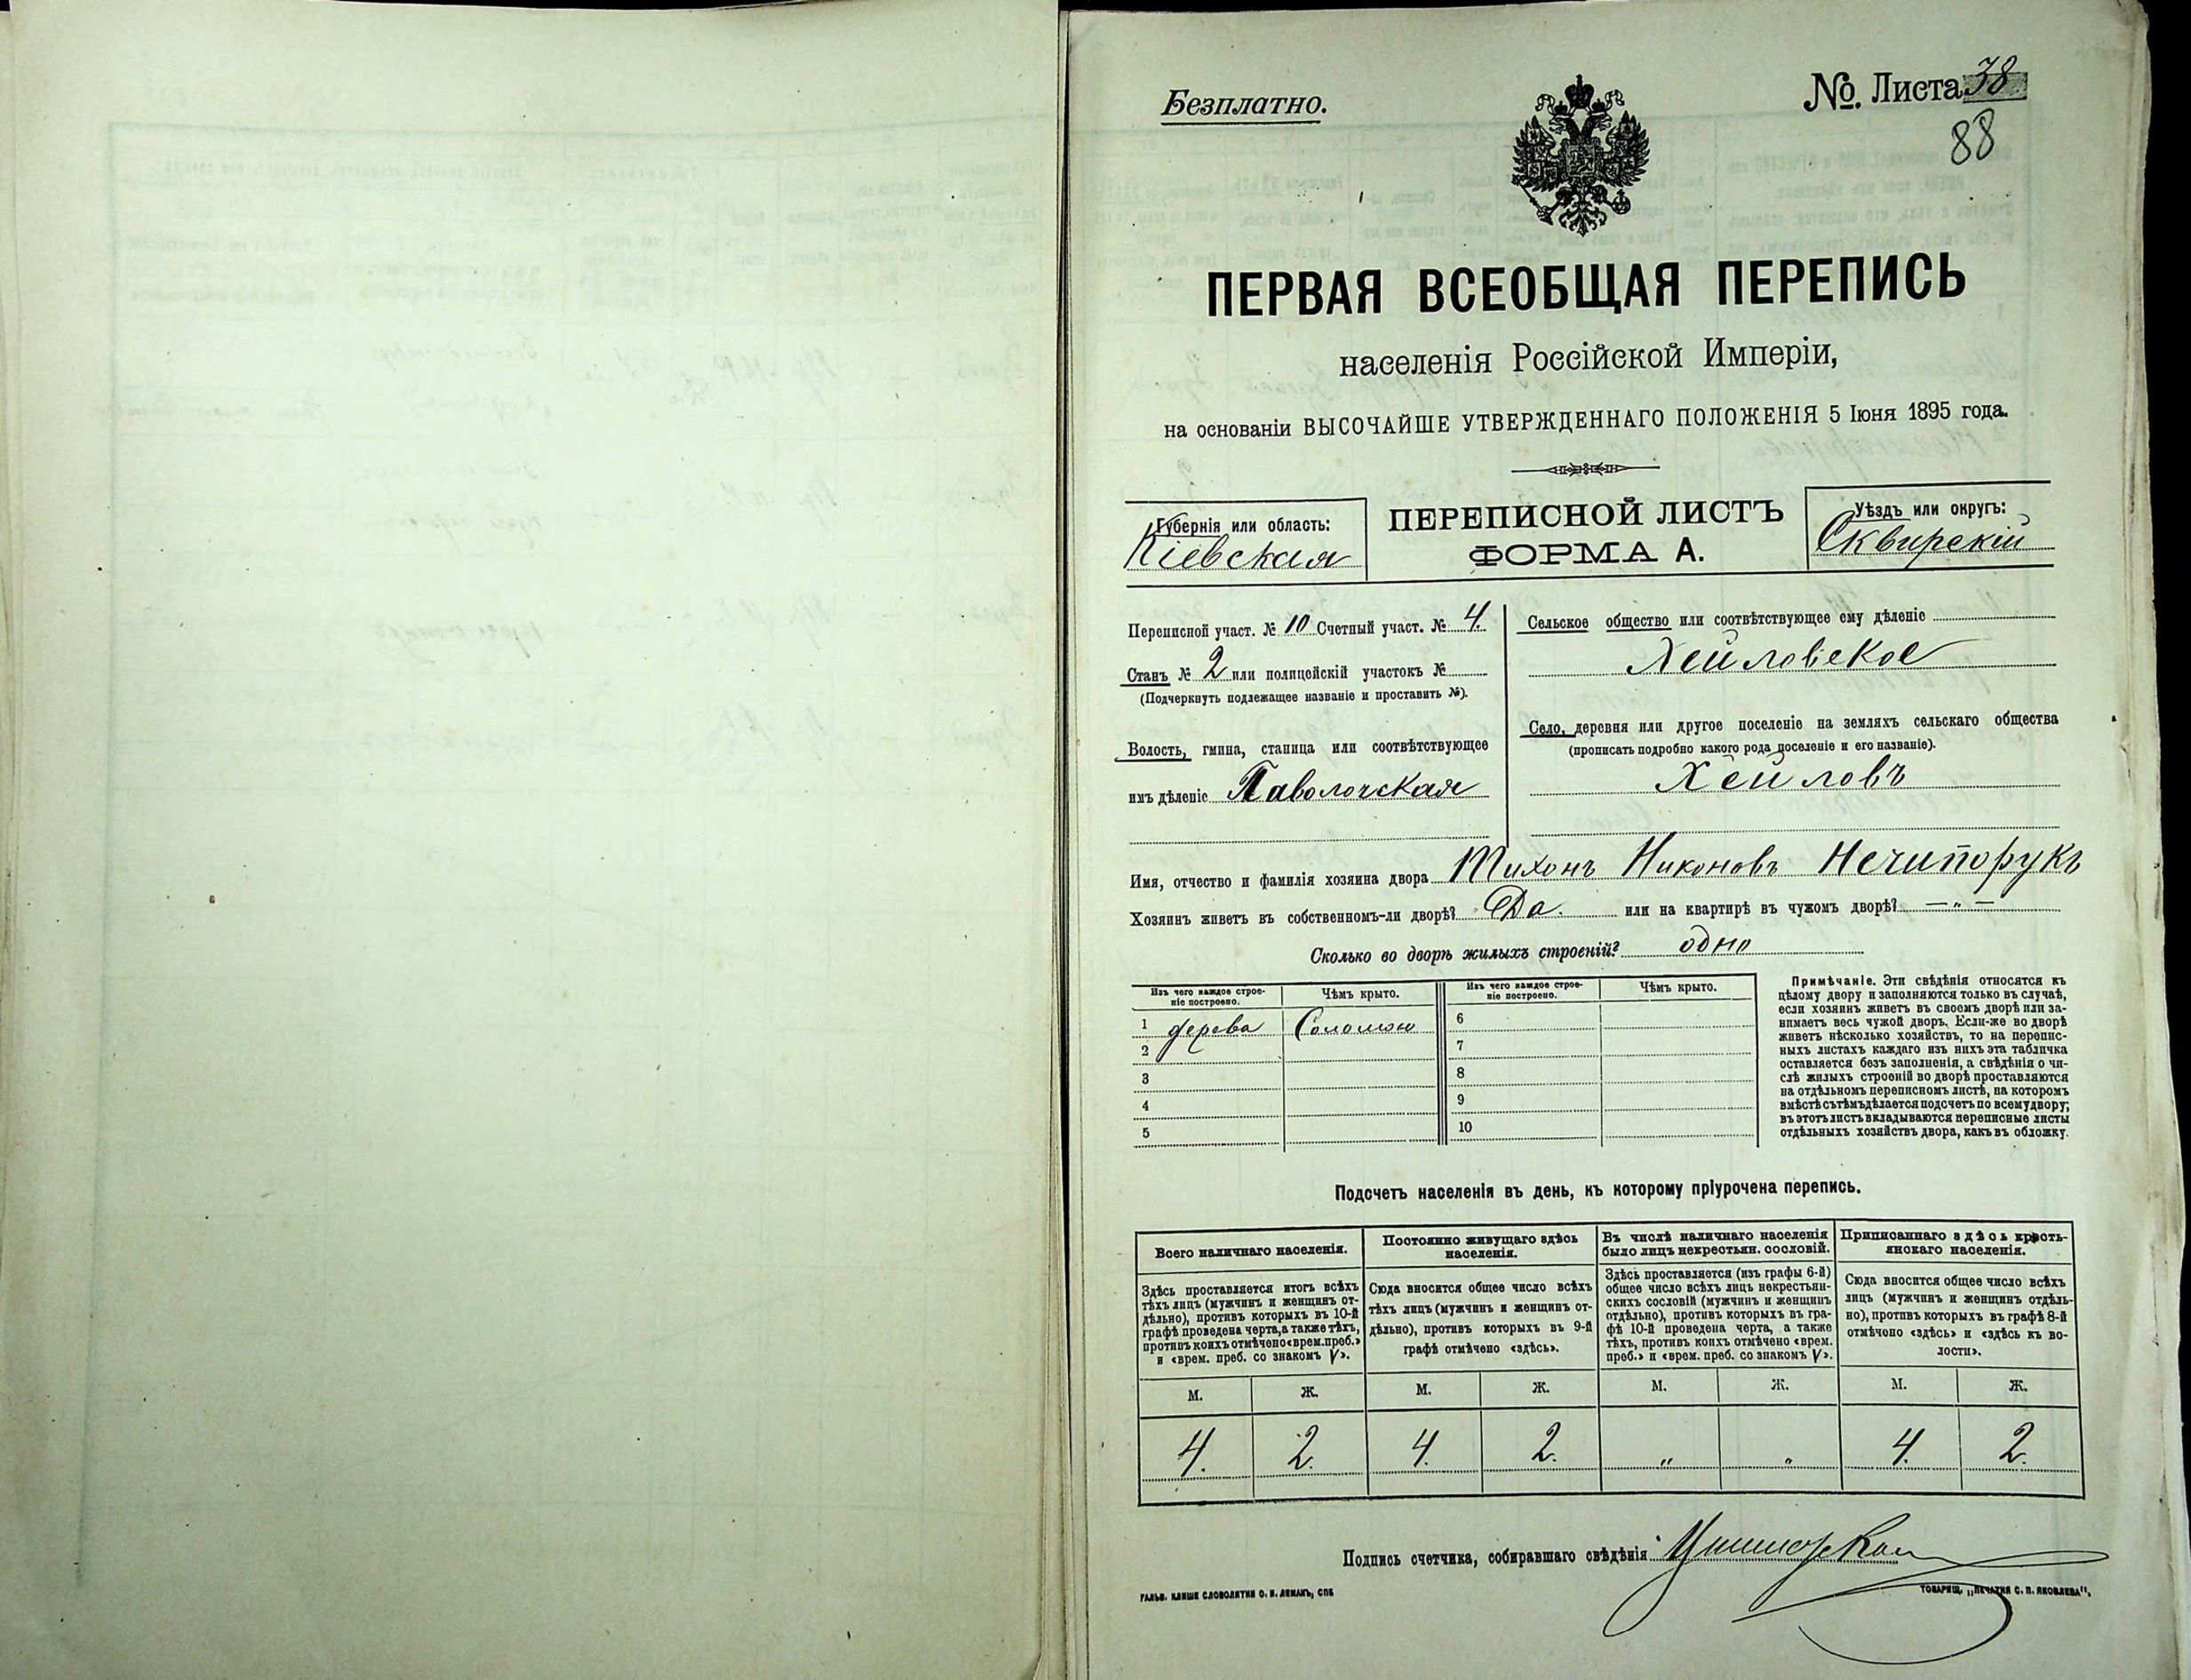 Безплатно.
№. Листа 38
88
ПЕРВАЯ ВСЕОБЩАЯ ПЕРЕПИСЬ
населенія Россійской Имперіи,
на основаніи ВЫСОЧАЙШЕ УТВЕРЖДЕННАГО ПОЛОЖЕНІЯ 5 Іюня 1895 года.
Губернія или область:
Кіевская
ПЕРЕПИСНОЙ ЛИСТЪ
ФОРМА А.
Уѣздъ или округъ:
Сквирскій
Переписной участ. № 10 Счетный участ. № 4.
Станъ № 2 или полицейскій участокъ №
(Подчеркнуть подлежащее названіе и проставить №).
Волость, гмина, станица или соотвѣтствующее
имъ дѣленіе Паволочская
Сельское общество или соотвѣтствующее ему дѣленіе
Хейловское
Село, деревня или другое поселеніе на земляхъ сельскаго общества
(прописать подробно какого рода поселеніе и его названіе).
Хейловъ
Имя, отчество и фамилія хозяина двора Тихонъ Никоновъ Нечипорукъ
Хозяинъ живетъ въ собственномъ-ли дворѣ? Да. или на квартирѣ въ чужомъ дворѣ? — „ —
Сколько во дворѣ жилыхъ строеній? одно
Изъ чего каждое строе-
ніе построено.
Чѣмъ крыто.
Изъ чего каждое строе-
ніе построено.
Чѣмъ крыто.
1 дерева Соломою 6
2 7
3 8
4 9
5 10
Примѣчаніе. Эти свѣдѣнія относятся къ
цѣлому двору и заполняются только въ случаѣ,
если хозяинъ живетъ въ своемъ дворѣ или за-
нимаетъ весь чужой дворъ. Если-же во дворѣ
живетъ нѣсколько хозяйствъ, то на перепис-
ныхъ листахъ каждаго изъ нихъ эта табличка
оставляется безъ заполненія, а свѣдѣнія о чи-
слѣ жилыхъ строеній во дворѣ проставляются
на отдѣльномъ переписномъ листѣ, на которомъ
вмѣстѣ съ тѣмъ дѣлается подсчетъ по всему двору;
въ этотъ листъ вкладываются переписные листы
отдѣльныхъ хозяйствъ двора, какъ въ обложку.
Подсчетъ населенія въ день, къ которому пріурочена перепись.
Всего наличнаго населенія.
Здѣсь проставляется итогъ всѣхъ
тѣхъ лицъ (мужчинъ и женщинъ от-
дѣльно), противъ которыхъ въ 10-й
графѣ проведена черта, а также тѣхъ,
противъ коихъ отмѣчено «врем. преб.»
и «врем. преб. со знакомъ V».
Постоянно живущаго здѣсь
населенія.
Сюда вносится общее число всѣхъ
тѣхъ лицъ (мужчинъ и женщинъ от-
дѣльно), противъ которыхъ въ 9-й
графѣ отмѣчено «здѣсь».
Въ числѣ наличнаго населенія
было лицъ некрестьян. сословій.
Здѣсь проставляется (изъ графы 6-й)
общее число всѣхъ лицъ некрестьян-
скихъ сословій (мужчинъ и женщинъ
отдѣльно), противъ которыхъ въ гра-
фѣ 10-й проведена черта, а также
тѣхъ, противъ коихъ отмѣчено «врем.
преб.» и «врем. преб. со знакомъ V».
Приписаннаго здѣсь кресть-
янскаго населенія.
Сюда вносится общее число всѣхъ
лицъ (мужчинъ и женщинъ отдѣль-
но), противъ которыхъ въ графѣ 8-й
отмѣчено «здѣсь» и «здѣсь къ во-
лости».
М. Ж. М. Ж. М. Ж. М. Ж.
4. 2. 4. 2. „ „ 4. 2.
Подпись счетчика, собиравшаго свѣдѣнія
ГАЛЬВ. КЛИШЕ СЛОВОЛИТНИ О. И. ЛЕМАНЪ, СПБ
ТОВАРИЩ. „ПЕЧАТНЯ С. П. ЯКОВЛЕВА“,